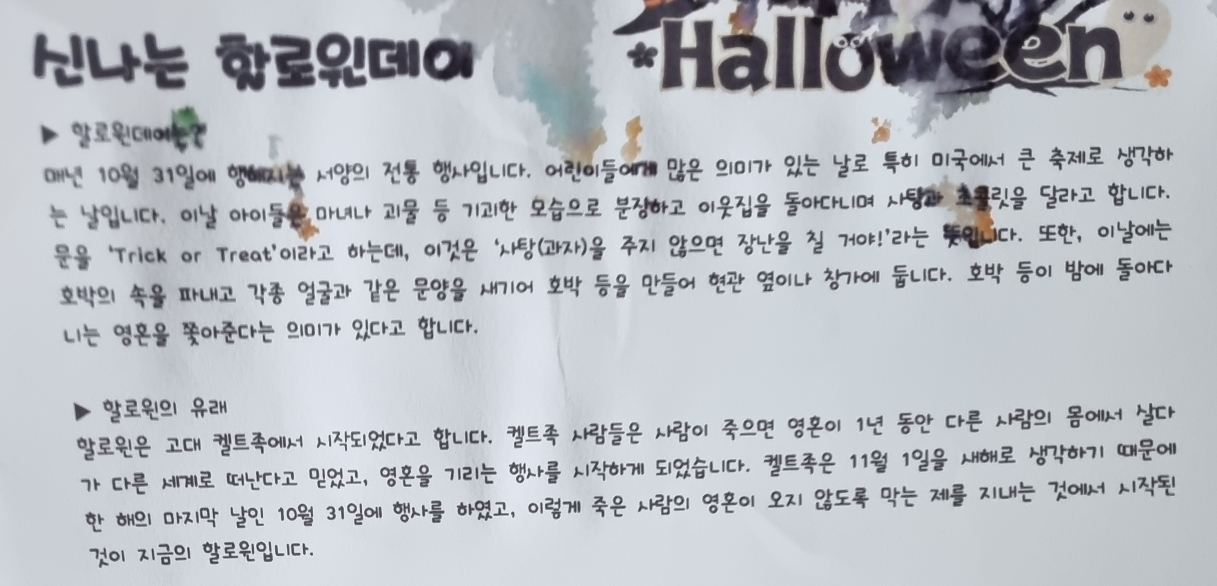 신나는 할로윈데이
Halloween
▶ 할로윈데이는?
매년 10월 31일에 행해지는 서양의 전통 행사입니다. 어린이들에게 많은 의미가 있는 날로 특히 미국에서 큰 축제로 생각하
는 날입니다. 이날 아이들은 마녀나 괴물 등 기괴한 모습으로 분장하고 이웃집을 돌아다니며 사탕과 초콜릿을 달라고 합니다.
문을 'Trick or Treat'이라고 하는데, 이것은 '사탕(과자)을 주지 않으면 장난을 칠 거야!'라는 뜻입니다. 또한, 이날에는
호박의 속을 파내고 각종 얼굴과 같은 문양을 새기어 호박 등을 만들어 현관 옆이나 창가에 둡니다. 호박 등이 밤에 돌아다
니는 영혼을 쫓아준다는 의미가 있다고 합니다.
▶ 할로윈의 유래
할로윈은 고대 켈트족에서 시작되었다고 합니다. 켈트족 사람들은 사람이 죽으면 영혼이 1년 동안 다른 사람의 몸에서 살다
가 다른 세계로 떠난다고 믿었고, 영혼을 기리는 행사를 시작하게 되었습니다. 켈트족은 11월 1일을 새해로 생각하기 때문에
한 해의 마지막 날인 10월 31일에 행사를 하였고, 이렇게 죽은 사람의 영혼이 오지 않도록 막는 제를 지내는 것에서 시작된
것이 지금의 할로윈입니다.